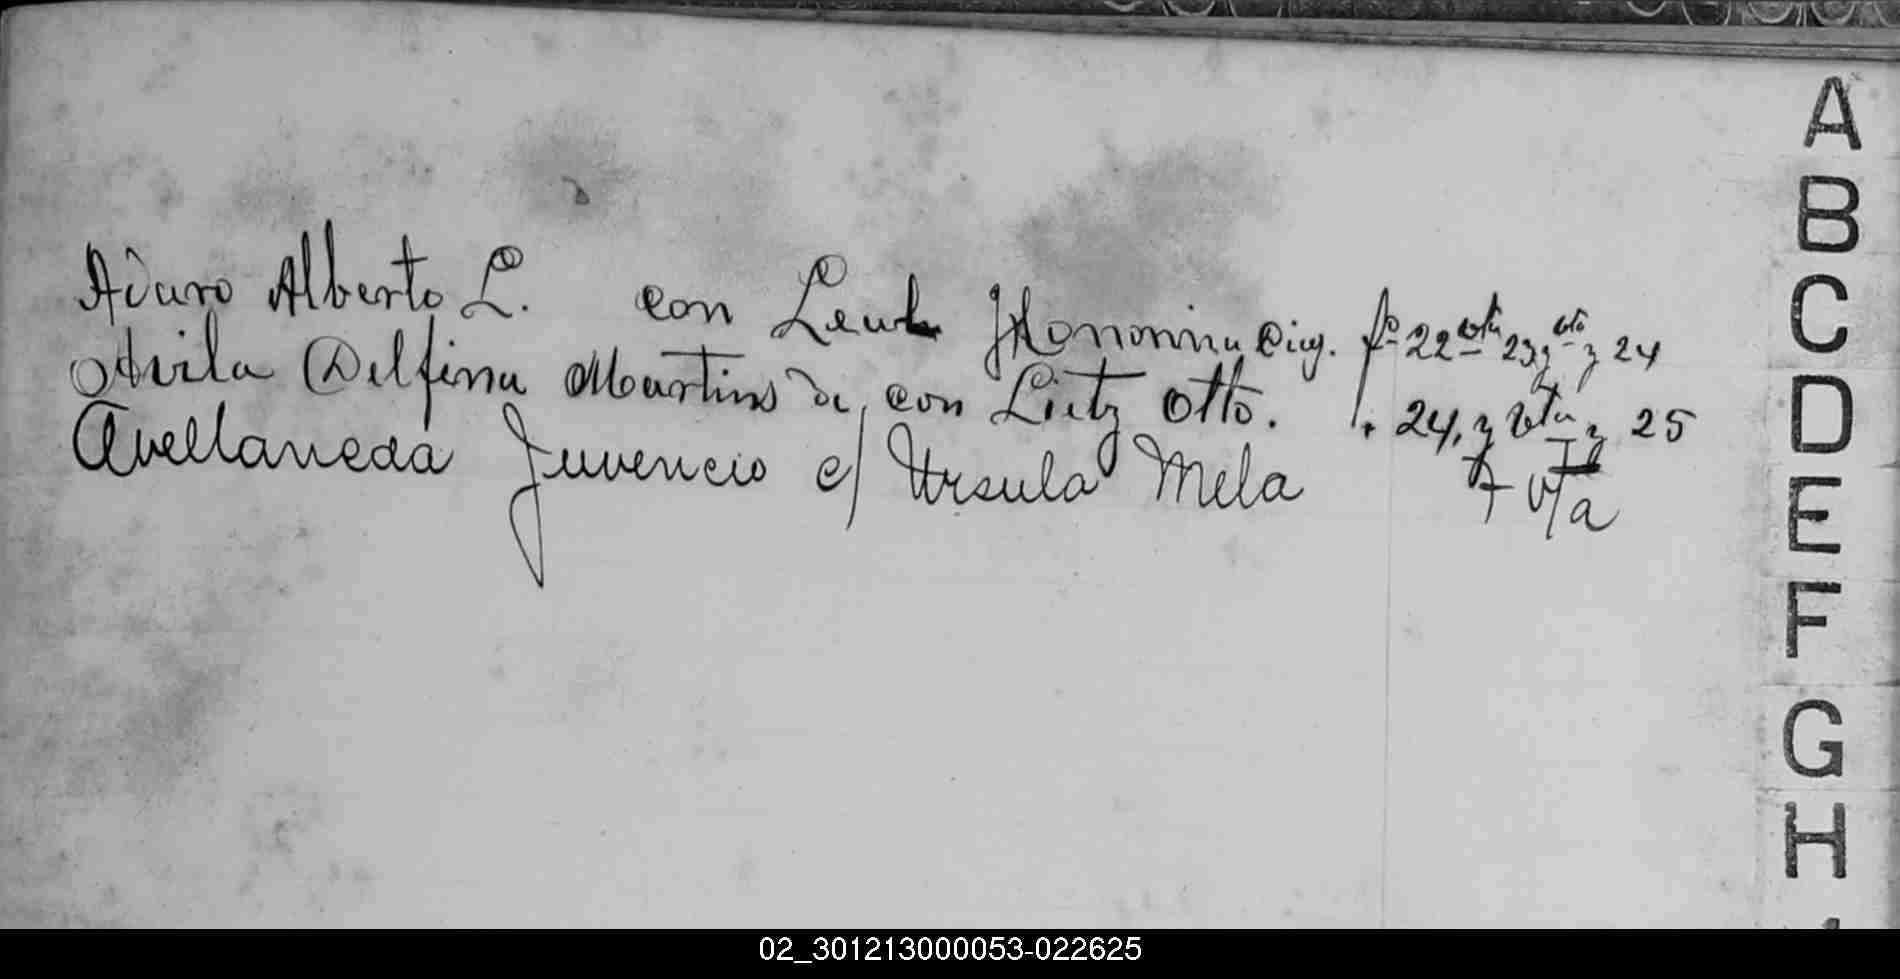 Alberto L. con
Avila Delfina Martins de, con Lietz Otto. " 24, y vta y 25
Avellaneda Juvencio c/ Ursula Mela 7 vta
fo 22 vta 23 y vta y 24
A
B
C
D
E
F
G
H
02_301213000053-022625